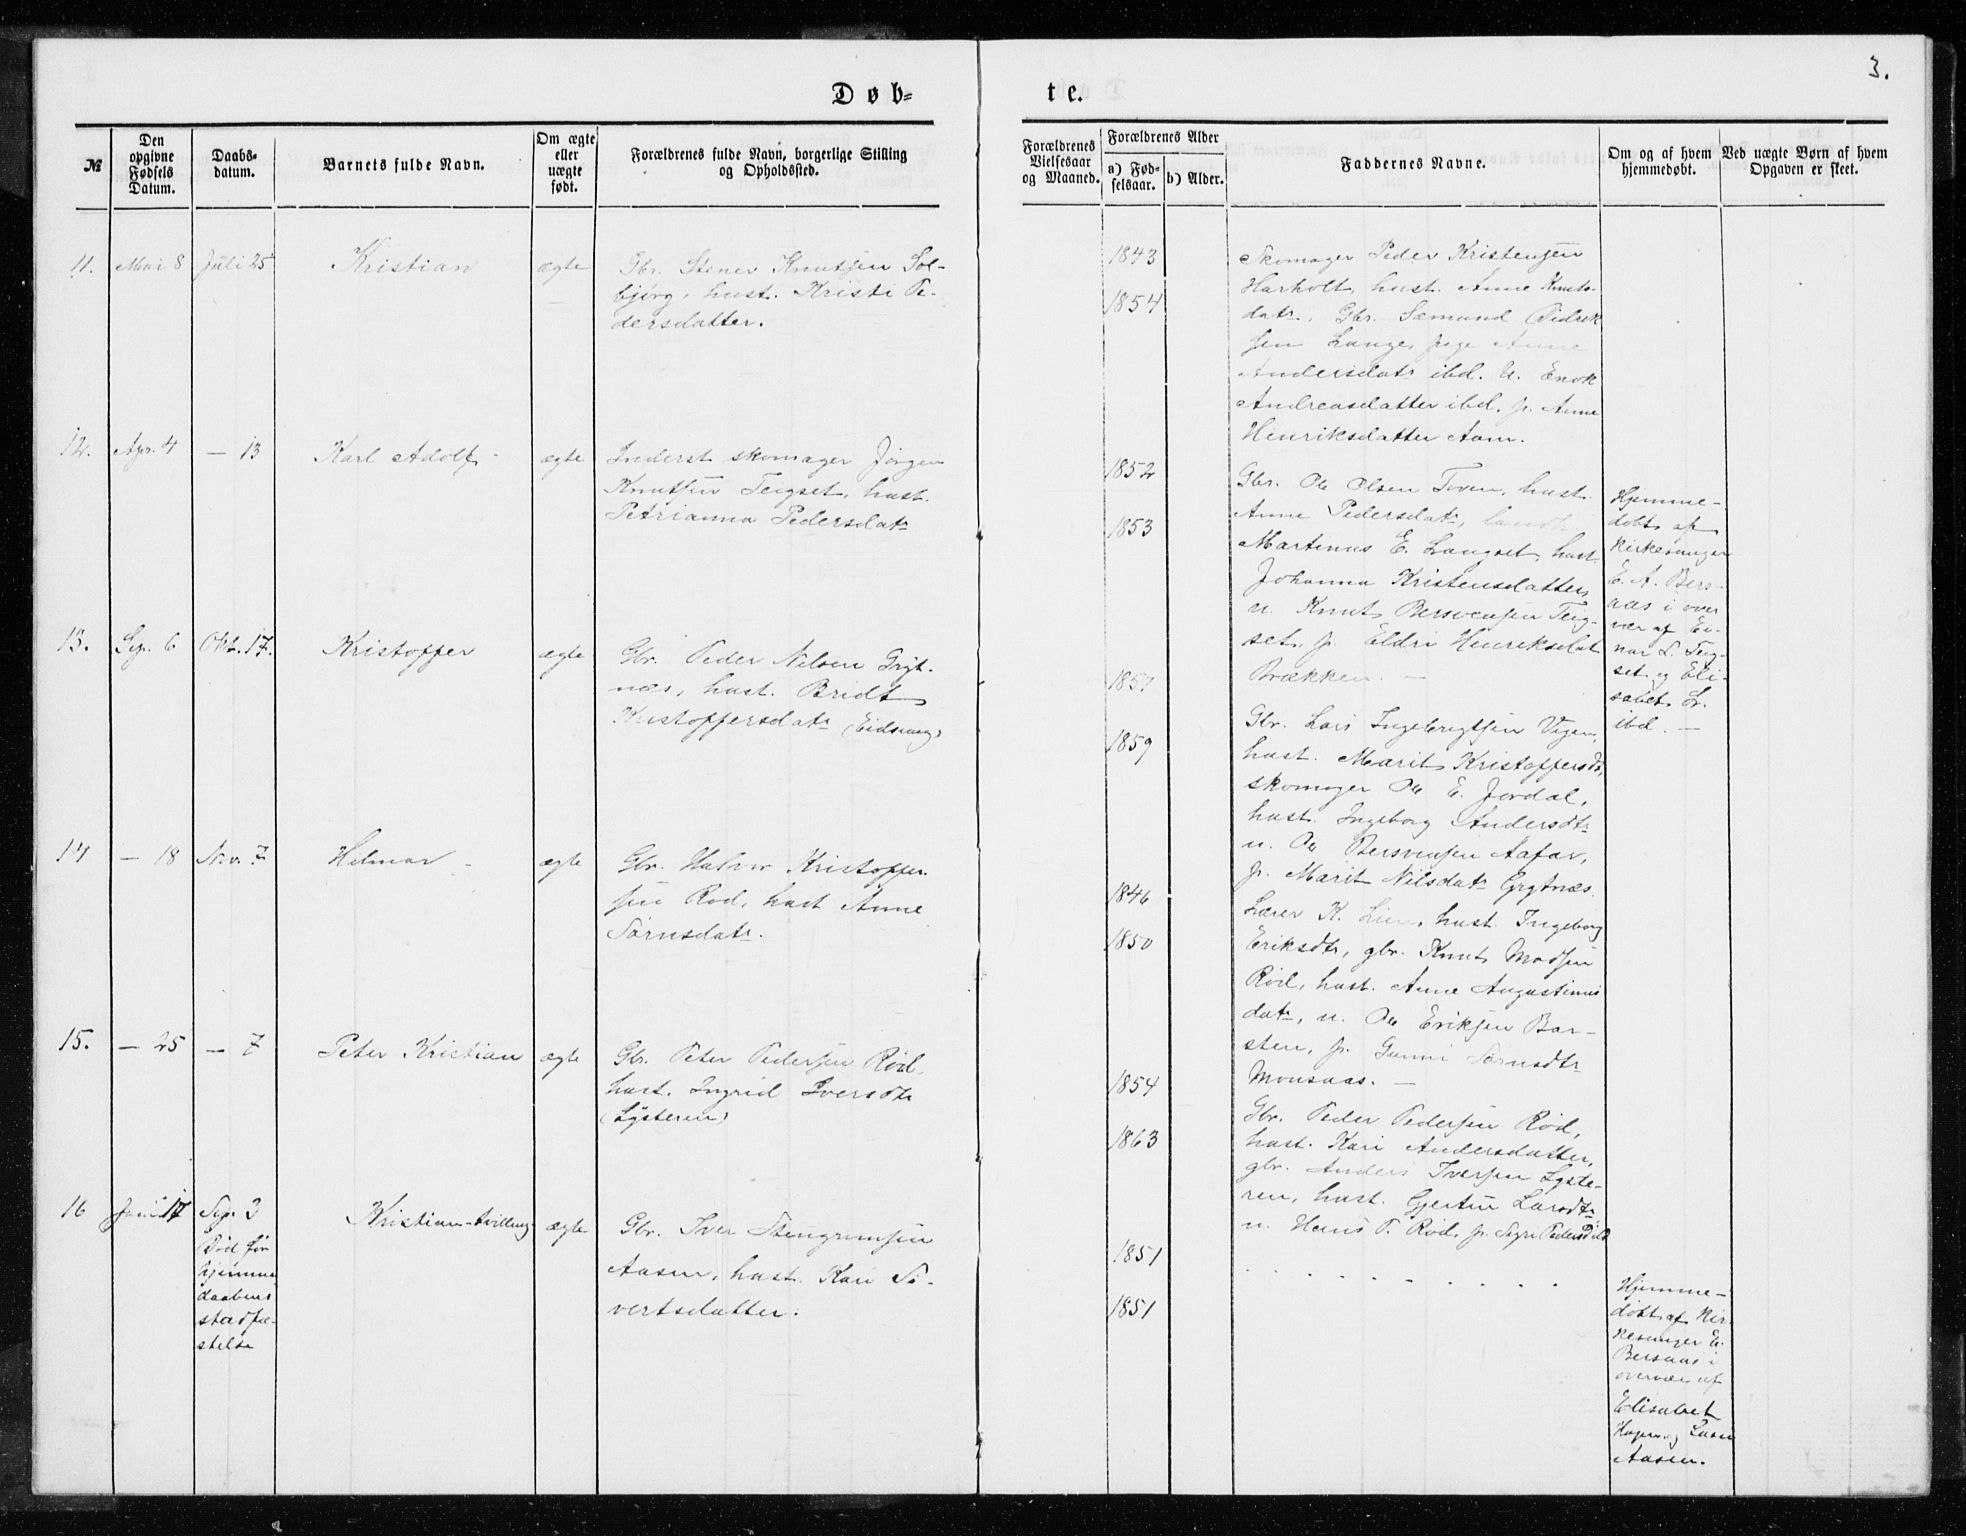 3.
Døb-
te.
№
Den opgivne Fødsels Datum.
Daabs-datum.
Barnets fulde Navn.
Om ægte eller uægte født.
Forældrenes fulde Navn, borgerlige Stilling og Opholdssted.
Forældrenes Vielsesaar og Maaned.
Forældrenes Alder
a) Fødselsaar.
b) Alder.
Faddernes Navne.
Om og af hvem hjemmedøbt.
Ved uægte Børn af hvem Opgaven er skeet.
11. Mai 8 Juli 25 Kristian ægte
Gbr. Stener Knutsen Sol-
bjørg, hust. Kristi Pe-
dersdatter.
1843
1854
Skomager Peder Kristensen
Harholt, hust. Anne Knuts-
datr. Gbr. Sæmund Didrik
sen Lange, pige Anne
Andersdatr ibd. U. Enok
Andreasdatter ibd. p. Anne
Henriksdatter Aam.
12. Apr. 4 — 13 Karl Adolf ægte
Inderst skomager Jörgen
Knutsen Teigset, hust.
Petrianna Pedersdatr
1852
1853
Gbr. Ole Olsen Toven, hust.
Anne Pedersdatr, landh.
Martinus E. Langset, hust.
Johanna Kristensdatter,
u. Knut Bersvensen Teig-
set, p. Eldri Henriksdat
Brækken. —
Hjemme-
døbt af
kirkesanger
E. A. Bers-
aas i over
vær af Ei-
nar L. Teig-
set og Eli-
sabet L.
ibd. —
13. Sep. 6 Okt. 17. Kristoffer ægte
Gbr. Peder Nilsen Gryt-
næs, hust. Bridt
Kristoffersdatr (Eidsvaag)
1851
1859
Gbr. Lars Ingebrigtsen Vigen,
hust. Marit Kristoffersdr,
skomager Ole E. Jordal,
hust. Ingeborg Andersdtr
u. Ole Bersvensen Aafar,
p. Marit Nilsdatr Grytnæs.
14 — 18 Nov. 7 Hilmar - ægte
Gbr. Halvor Kristoffer-
sen Rød, hust Anne
Sørnsdatr.
1846
1850
Lærer K. Lien, hust. Ingeborg
Eriksdtr, gbr. Knut Madsen
Rød, hust. Anne Augustinus
datr, u. Ole Eriksen Bar-
sten, p. Gunni Sørnsdtr
Monsaas. —
15. — 25 — 7 Peter Kristian ægte
Gbr. Peter Pedersen Rød,
hust. Ingrid Iversdtr
(Lysteren)
1854
1863
Gbr. Peder Pedersen Rød,
hust. Kari Andersdatter,
gbr. Anders Iversen Lyste-
ren, hust. Gjertru Larsdtr
u. Hans P. Rød, p. Sigri Pedersd ibd
16 Juni 17 Sep. 3 Kristian - tvilling ægte
Død før
hjemme
daabens
stadfæ-
stelse
Gbr. Iver Stengrimsen
Aasen, hust. Kari Si-
vertsdatter.
1851
1851
Hjemme-
døbt af kir-
kesanger E.
Bersaas i
overvær af
Elisabet
Hagen og Lasse
Aasen.